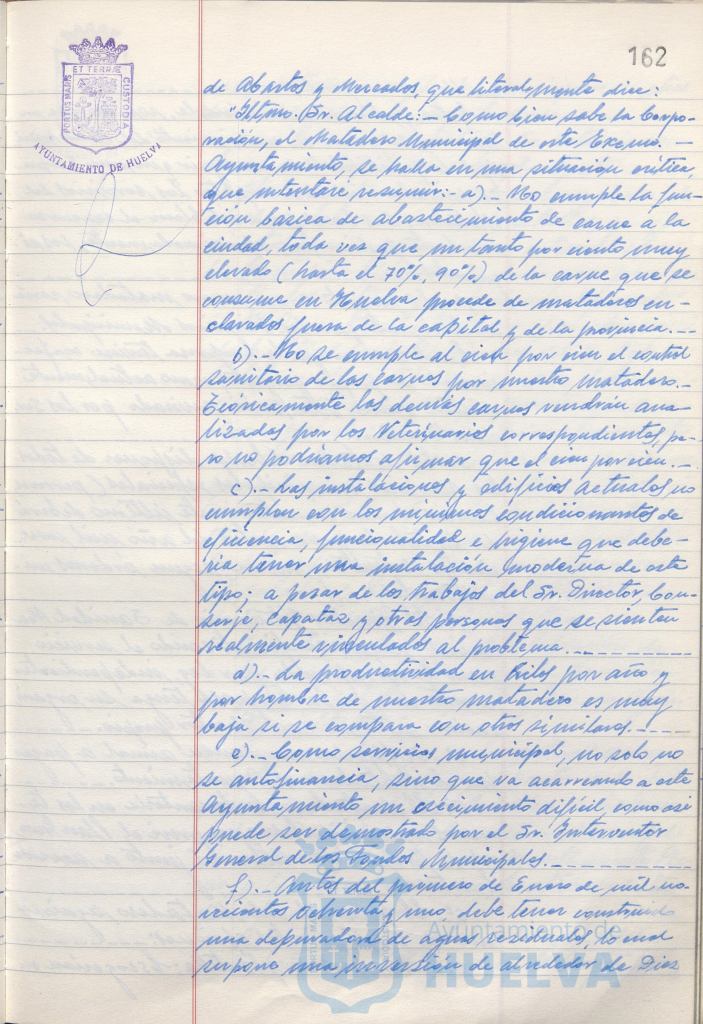 162
PORTUS MARIS ET TERRÆ CUSTODIA
AYUNTAMIENTO DE HUELVA
de Abastos y Mercados, que literalmente dice:
"Iltmo. Sr. Alcalde:- Como bien sabe la Corpo-
ración, el Matadero Municipal de este Excmo. -
Ayuntamiento, se halla en una situación crítica,
que intentaré resumir:- a).- No cumple la fun-
ción básica de abastecimiento de carne a la
ciudad, toda vez que un tanto por ciento muy
elevado (hasta el 70%, 90%) de la carne que se
consume en Huelva procede de mataderos en-
clavados fuera de la capital y de la provincia.---
b).- No se cumple al cien por cien el control
sanitario de las carnes por nuestro matadero.-
Teóricamente las demás carnes vendrán ana-
lizadas por los Veterinarios correspondientes, pe-
ro no podríamos afirmar que el cien por cien.--
c).- Las instalaciones y edificios actuales no
cumplen con los mínimos condicionantes de
eficiencia, funcionalidad e higiene que debe-
ría tener una instalación moderna de este
tipo; a pesar de los trabajos del Sr. Director, Con-
serje, Capataz y otras personas que se sienten
realmente vinculados al problema.---------
d).- La productividad en Kilos por año y
por hombre de nuestro matadero es muy
baja si se compara con otros similares.-----
e).- Como servicio municipal, no solo no
se autofinancia, sino que va acarreando a este
Ayuntamiento un crecimiento difícil, como así
puede ser demostrado por el Sr. Interventor
General de los Fondos Municipales.---------
f).- Antes del primero de Enero de mil no-
vecientos ochenta y uno, debe tener construida
una depuradora de aguas residuales, lo cual
supone una inversión de alrededor de Diez
Ayuntamiento de
HUELVA